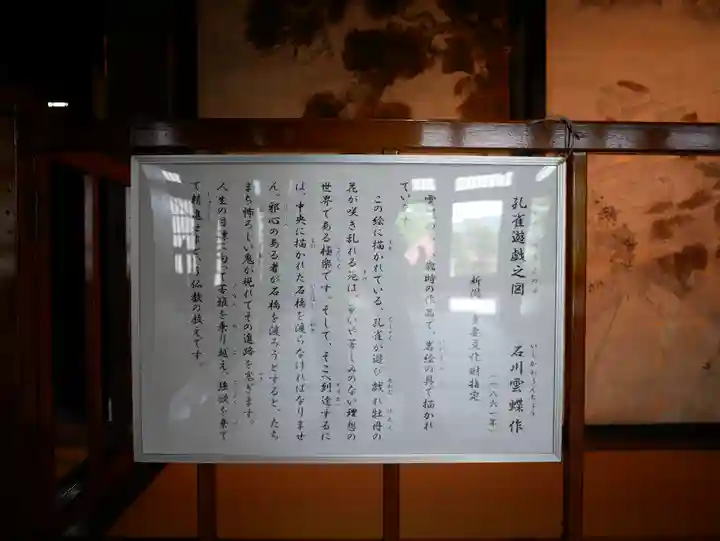 孔雀遊戯之図
石川雲蝶作
いしかわうんちょう
(一八六一年)
新潟 重要文化財指定
雲 歳時の作品で、岩絵の具で描かれ
てい
この絵に描かれている、孔雀が遊び戯れ牡丹の
花が咲き乱れる は、 い や苦しみのない理想の
世界である極楽です。そして、そこへ到達するに
は、中央に描かれた石橋を渡らなければなりませ
ん。邪心のある者が石橋を渡ろうとすると、たち
まち怖ろしい鬼が現れてその進路を塞ぎます。
人生の目 に向って苦難を乗り越え、 を棄て
て精進せ という仏教の教えです。